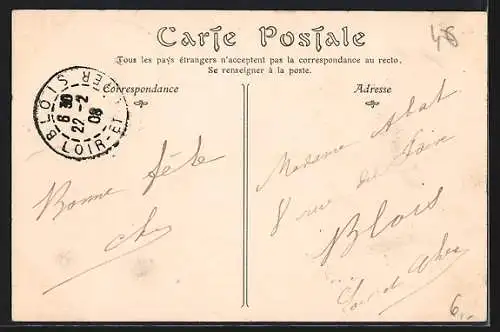 Carte Postale
Tous les pays étrangers n'acceptent pas la correspondance au recto.
Se renseigner à la poste.
Correspondance
Adresse
48
BLOIS
6 30
22 -2
08
LOIR-ET-CHER
Bonne fête
Madame Abat
8 rue
Blois
Loir et Cher
6